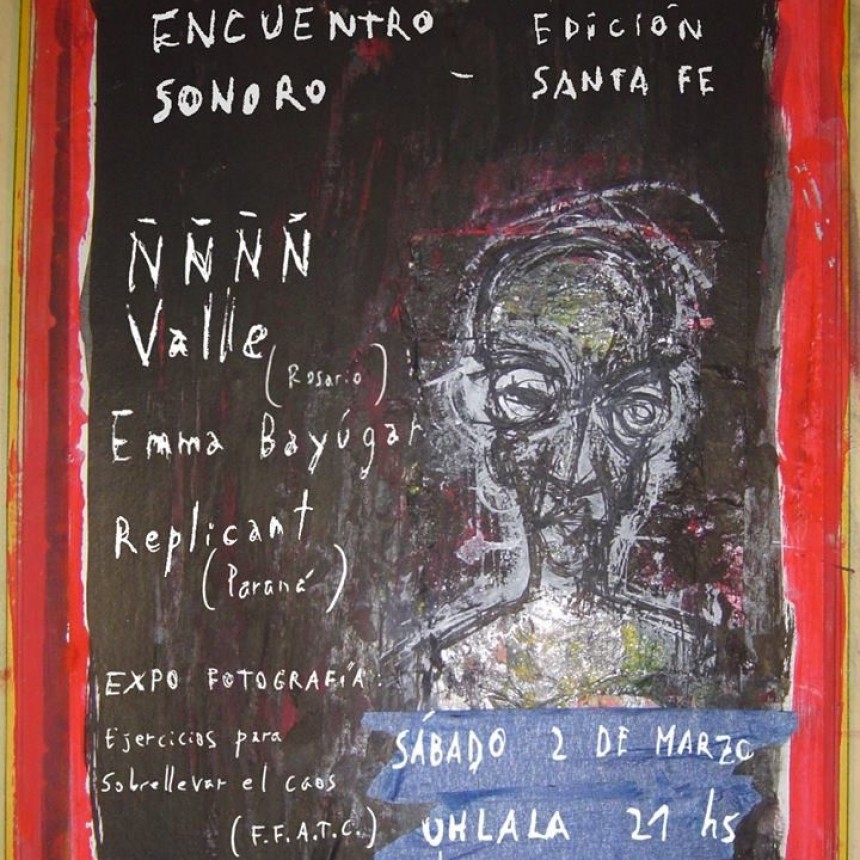 ENCUENTRO
SONORO
-
EDICIÓN
SANTA FE
ÑÑÑÑ
Valle
(Rosario)
Emma Bayúgar
Replicant
(Paraná)
EXPO FOTOGRAFÍA:
Ejercicios para
Sobrellevar el caos
(F.F.A.T.C.)
SÁBADO 2 DE MARZO
UHLALA 21 hs